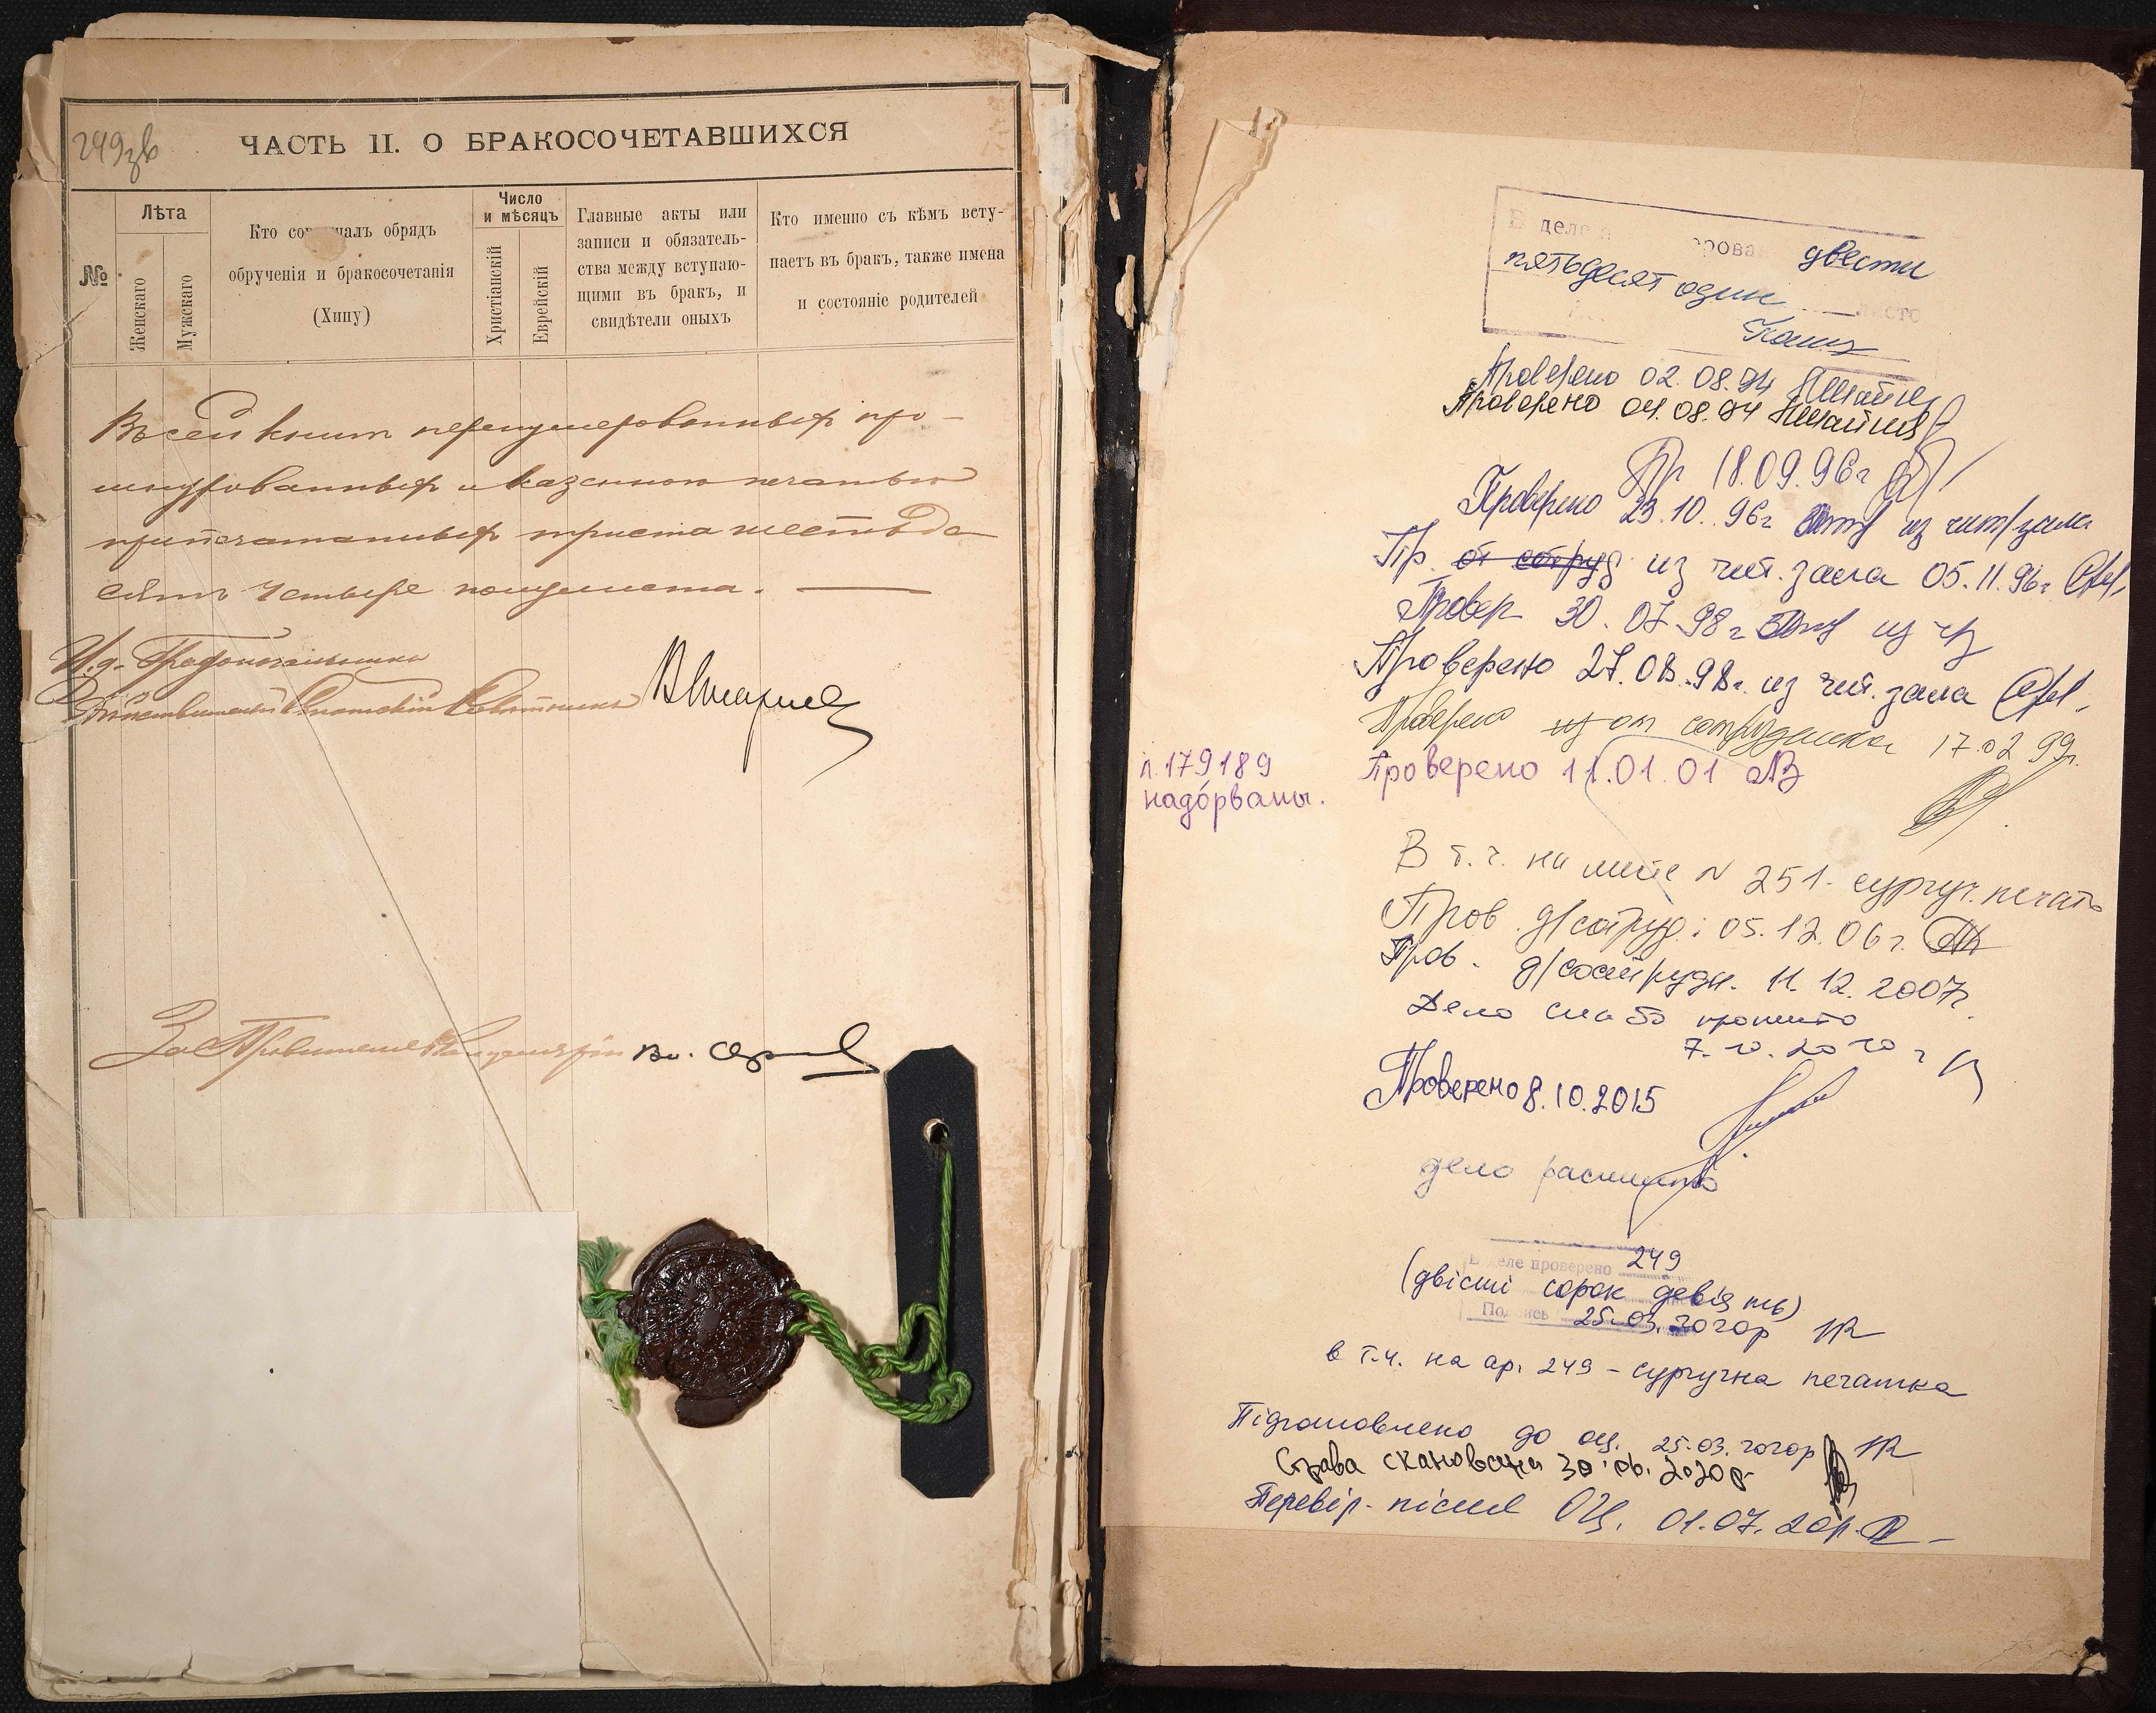 249зв
ЧАСТЬ II. О БРАКОСОЧЕТАВШИХСЯ
№
Лѣта
Женскаго
Мужскаго
Кто со налъ обрядъ
обрученія и бракосочетанія
(Хипу)
Число
и мѣсяцъ
Христіанскій
Еврейскій
Главные акты или
записи и обязатель-
ства между вступаю-
щими въ бракъ, и
свидѣтели оныхъ
Кто именно съ кѣмъ всту-
паетъ въ бракъ, также имена
и состояніе родителей
Въ сей книгѣ перенумерованныхъ про-
шнурованныхъ и казенною печатью
припечатанныхъ триста шестьде-
сятъ четыре полулиста.
И. д. Градоначальника
Дѣйствительный Статскій Совѣтникъ
За Правителя Канцеляріи Вл.
В деле двести
пятьдесят один листо
Проверено 02.08.94
Проверено 04.08.94
Пр 18.09.96г
Проверено 23.10.96г из чит/зала
Пр. от сотруд из чит. зала 05.11.96г
Провер 30.07.98г из чз
Проверено 27.08.98г. из чит. зала
Проверено из от сотрудника 17.02.99г.
л. 179 189
надорваны.
Проверено 11.01.01
В т.ч. на листе N 251 - сургуч. печать
Пров. д/сотруд: 05.12.06г.
Пров. д/сотрудн. 11.12.2007г.
Дело слабо прошито
7.10.2010 г
Проверено 8.10.2015
дело расшито
В деле проверено 249
(двісті сорок девять)
Подпись 25.03.2020р
в т.ч. на ар. 249 - сургучна печатка
Підготовлено до оц. 25.03.2020р
Справа сканована 30.06.2020р
Перевір. після ОЦ. 01.07.20р.